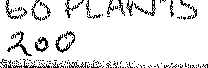 60 PLANTS
200